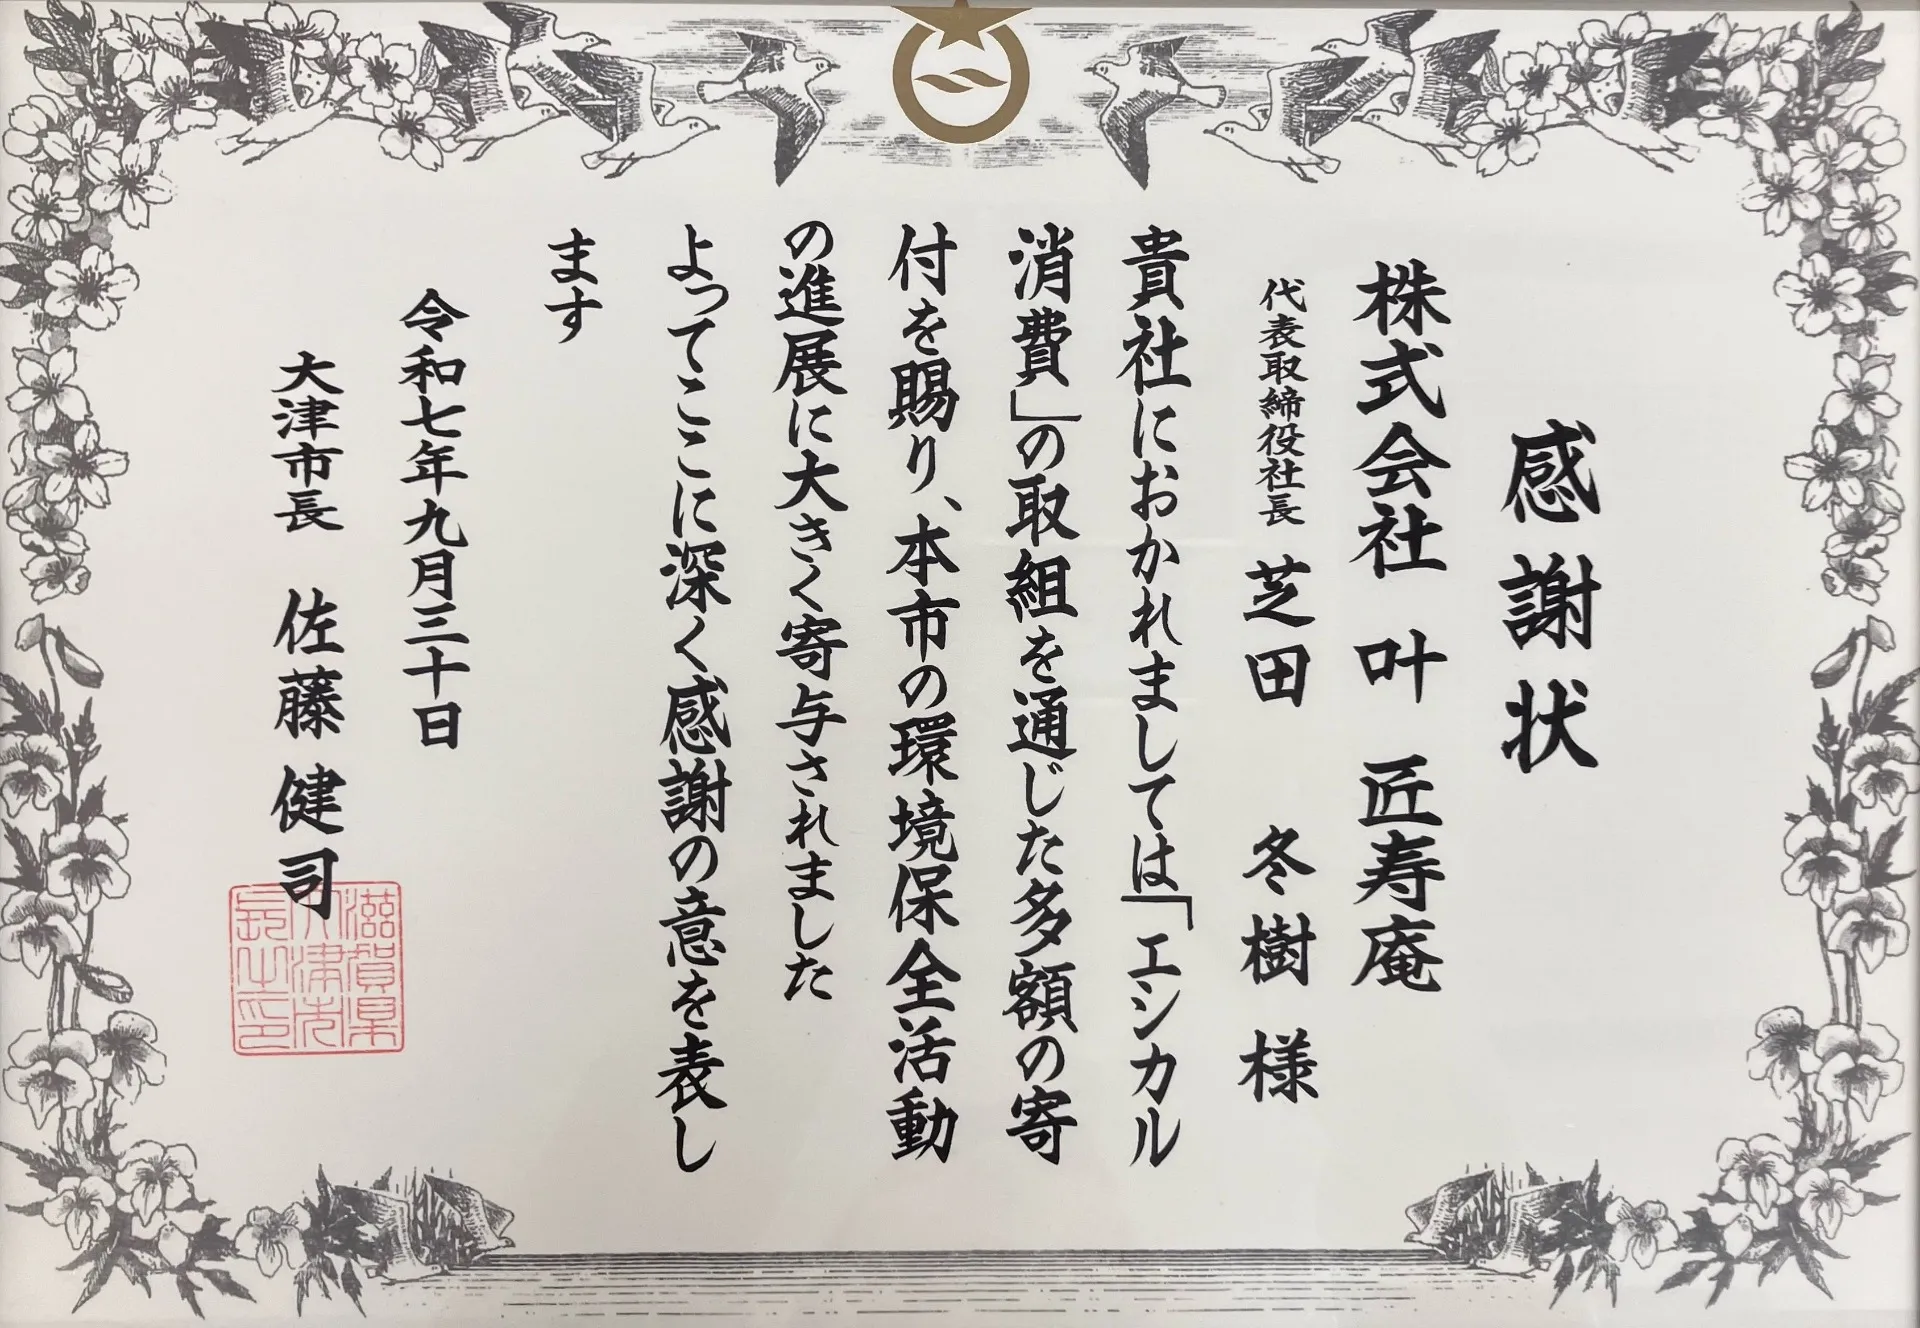 感謝状
株式会社 叶 匠寿庵
代表取締役社長 芝田 冬樹 様
貴社におかれましては「エシカル
消費」の取組を通じた多額の寄
付を賜り、本市の環境保全活動
の進展に大きく寄与されました
よってここに深く感謝の意を表し
ます
令和七年九月三十日
大津市長 佐藤健司
滋賀県
大津市
長之印